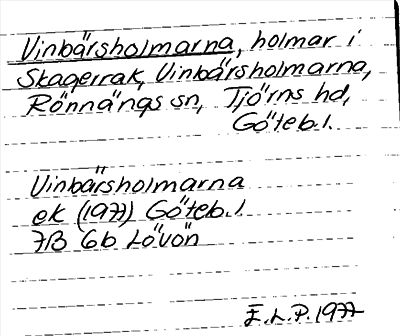 Vinbärsholmarna, holmar i
Skagerrak, Vinbärsholmarna,
Rönnängs sn, Tjörns hd,
Göteb.l.
Vinbärsholmarna
ek (1977) Göteb.l.
7B 6b Lövön
E.L.P. 1977